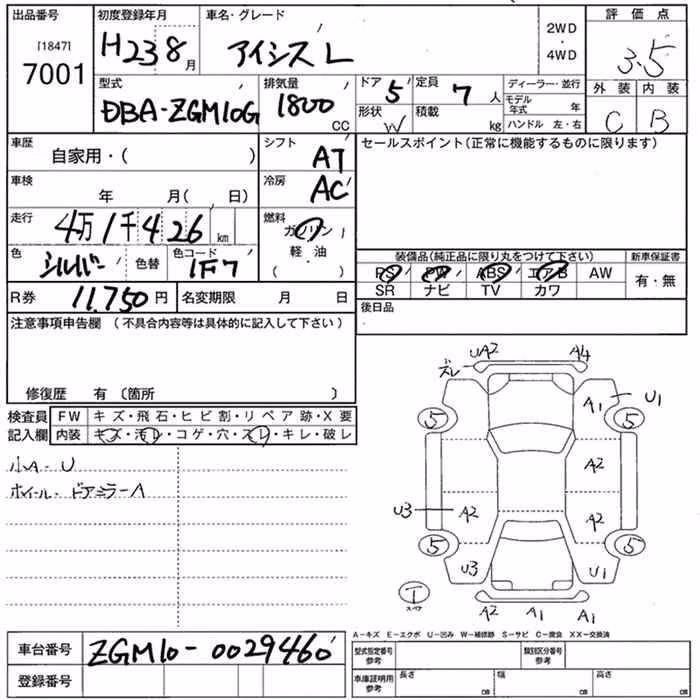 出品番号 初度登録年月 車名・グレード 評価点
[1847] 7001 H23 8月 アイシス L 2WD・4WD 3.5
型式 排気量 ドア 5 定員 7人 ディーラー・並行 外装 内装
DBA-ZGM10G 1800 CC 形状 W 積載 kg モデル年式 年 C B
ハンドル 左・右
車歴 自家用・( ) シフト AT セールスポイント(正常に機能するものに限ります)
車検 年 月( 日) 冷房 AC
走行 4万1千426km 燃料 ガソリン
色 シルバー 色替 色コード 1F7 軽・油
( )
装備品(純正品に限り丸をつけて下さい) 新車保証書
PS PW ABS エアB AW 有・無
SR ナビ TV カワ
R券 11,750円 名変期限 月 日 後日品
注意事項申告欄 (不具合内容等は具体的に記入して下さい)
修復歴 有 〔箇所 〕
検査員 FW キズ・飛石・ヒビ割・リペア跡・X要
記入欄 内装 キズ・汚レ・コゲ・穴・スレ・キレ・破レ
小A・U
ホイール・ドアミラーA
ズレ UA2 A4
A1 U1
5 5
A2
U3 A2 A2
5 5
U3 U1
T
スペア
A2 A1 A1
A-キズ E-エクボ U-凹み W-補修跡 S-サビ C-腐食 XX-交換済
車台番号 ZGM10-0029460 型式指定番号 参考 類別区分番号 参考
登録番号 車庫証明用 参考 長さ cm 幅 cm 高さ cm